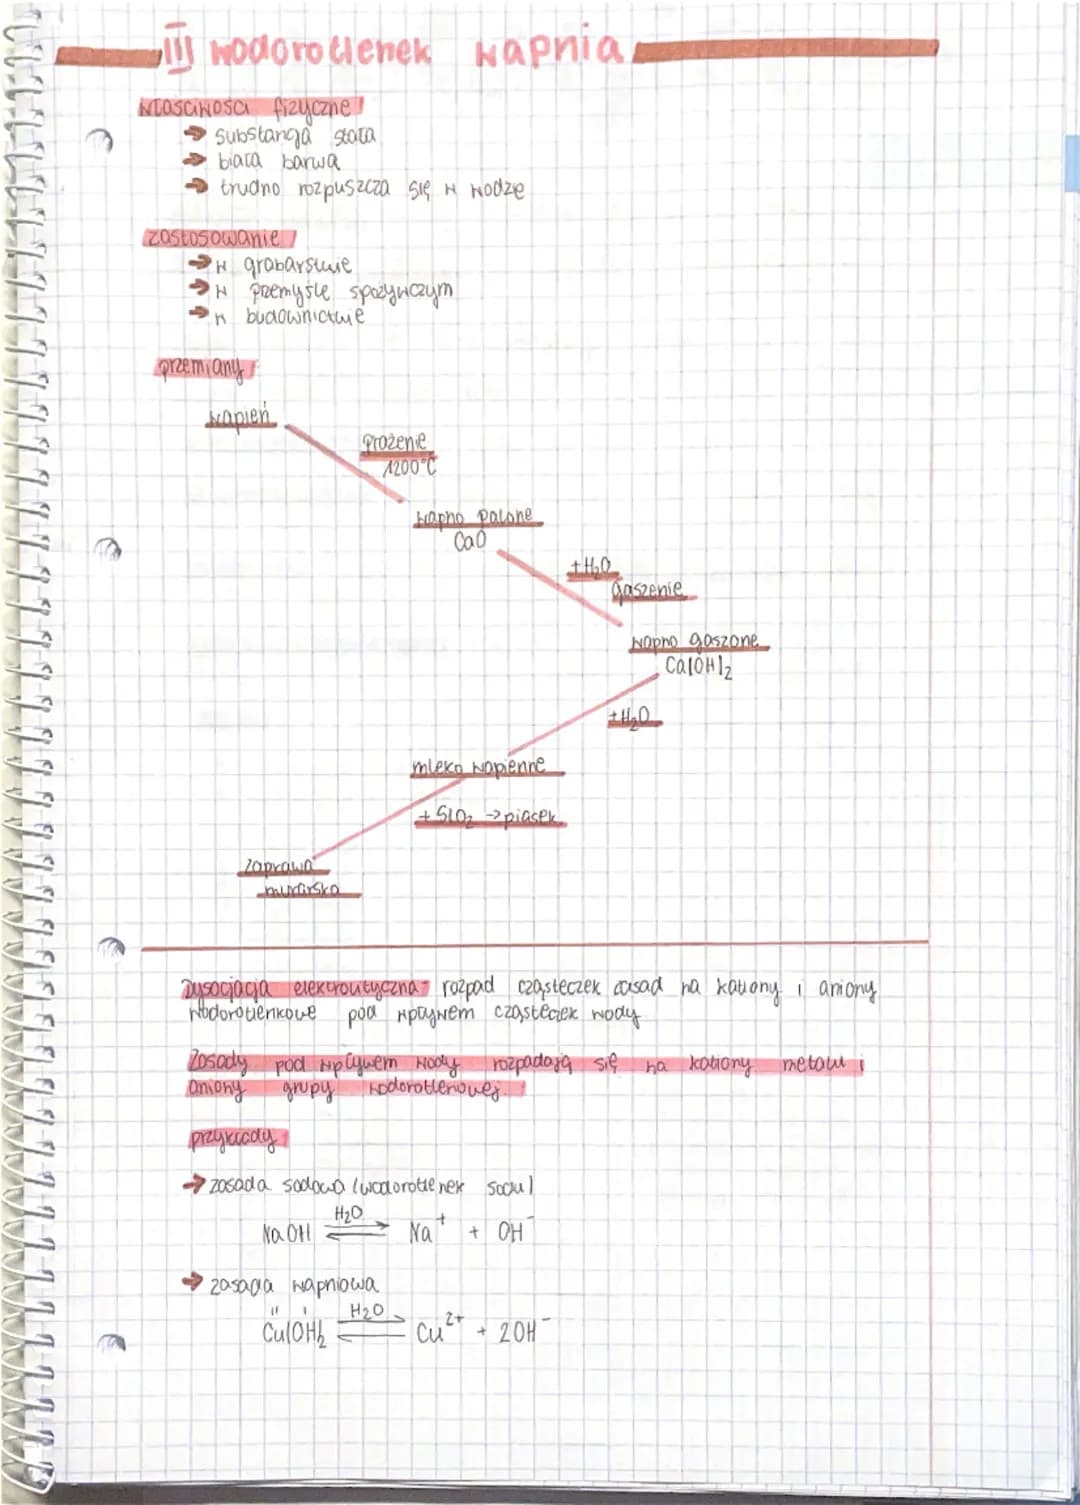 III wodorotlenek wapnia
właściwości fizyczne
→ substancja stała
→ biała barwa
→ trudno rozpuszcza się w wodzie
zastosowanie
→ w grabarstwie
→ w przemyśle spożywczym
→ w budownictwie
przemiany
wapień
prażenie
1200°C
wapno palone
CaO
+H₂O
gaszenie
wapno gaszone
Ca(OH)₂
+H₂O
mleko wapienne
+ SiO₂ → piasek
zaprawa
murarska
Dysocjacja elektrolityczna - rozpad cząsteczek zasad na kationy i aniony
wodorotlenkowe pod wpływem cząsteczek wody
Zasady pod wpływem wody rozpadają się na kationy metalu i
aniony grupy wodorotlenowej.
przykłady
→ zasada sodowa (wodorotlenek sodu)
H₂O
NaOH ⇌ Na⁺ + OH⁻
→ zasada wapniowa
II I H₂O
Cu(OH)₂ ⇌ Cu²⁺ + 2OH⁻